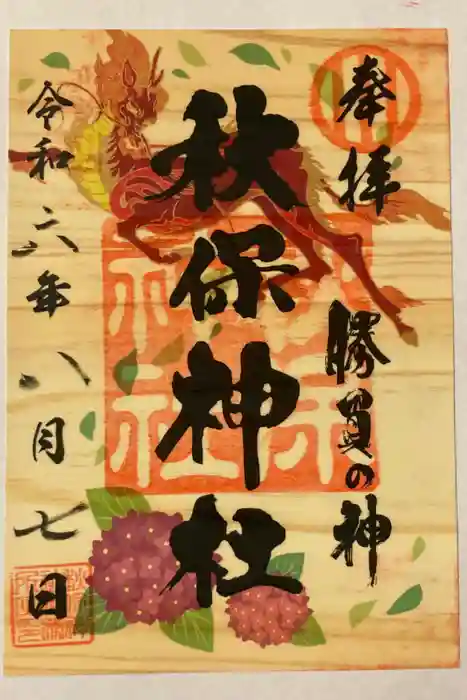 奉拝
勝負の神
秋保神社
令和六年八月七日